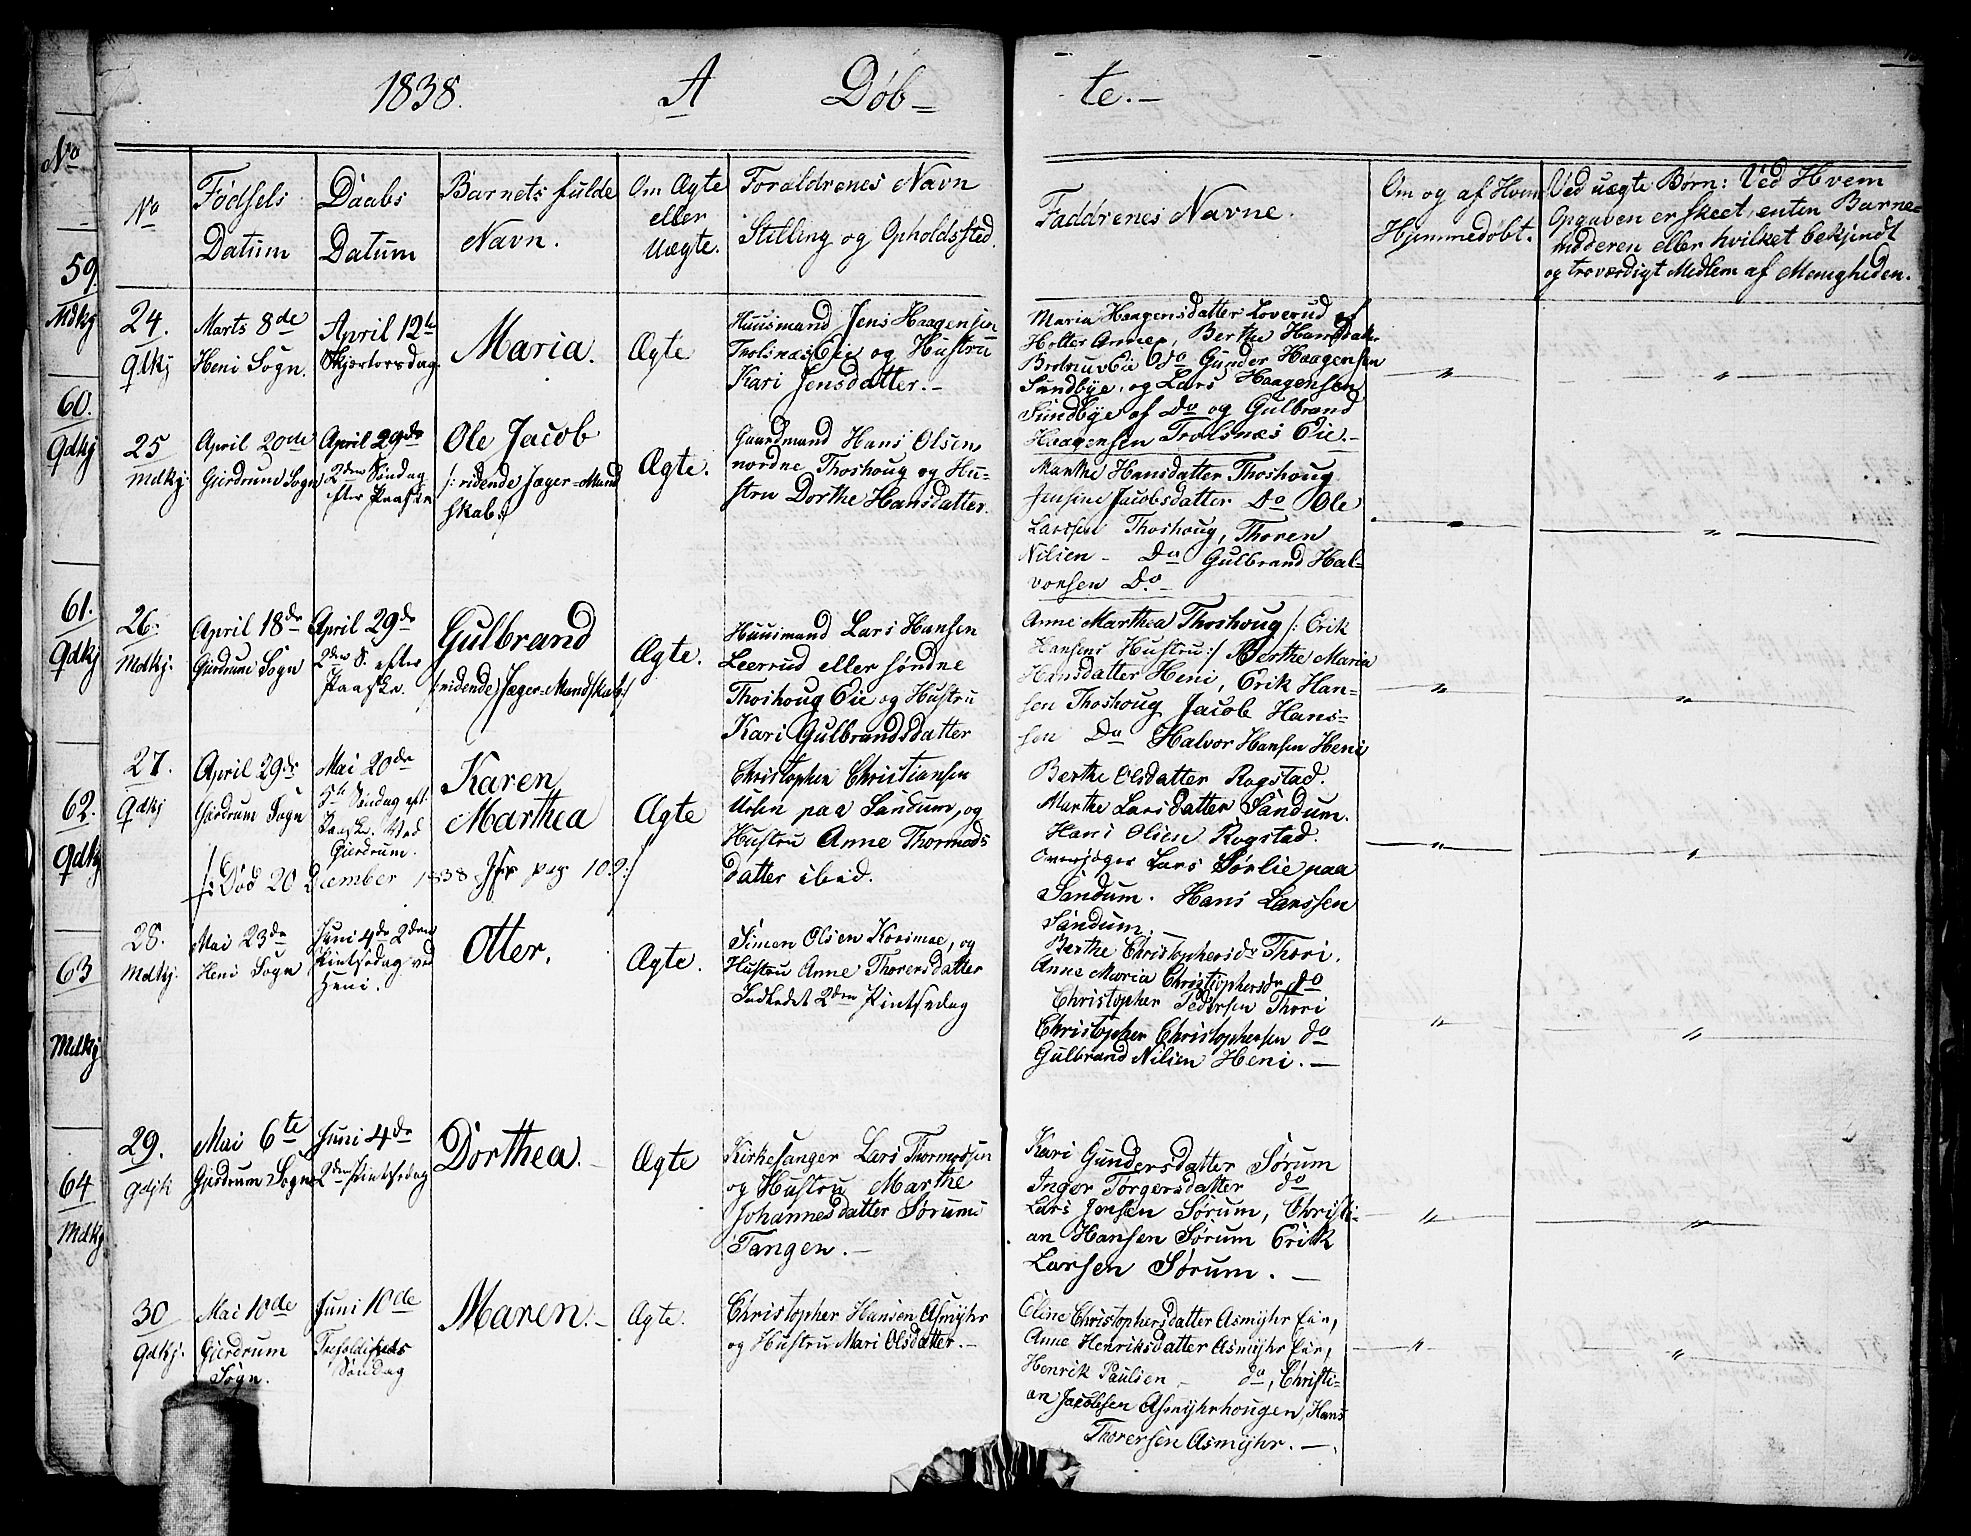 1838. A Døb=
te.-
No
59.
Mdkj
60.
Qdkj
61.
Qdkj
62.
Qdkj
63
Mdkj
64
Mdkj
No
Fødsels
Datum
Daabs
Datum
Barnets fulde
Navn.
Om Ægte
eller
Uægte.
Forældrenes Navn
Stilling og Opholdssted.
Faddrenes Navne.
Om og af Hvem
Hjemmedøbt.
Ved uægte Børn: Ved Hvem
Opgaven er skeet, enten Barne-
fadderen eller hvilket bekjendt
og troværdigt Medlem af Menigheden.
24.
Qdkj
Marts 8de
Heni Sogn.
April 12te
Skjertorsdag
Maria.
Ægte
Huusmand Jens Haagensen
Trolsnæs Eie og Hustru
Kari Jensdatter.-
Maria Haagensdatter Loverud af
Holter Annex, Berthe Hansdatter
Eie Do Gunder Haagensen
Sundbye, og Lars Haagensen
Sundbye af Do og Gulbrand
Haagensen Trolsnæs Eie.-
25
Mdkj.
April 20de
Gjerdrum Sogn
April 29de
2den Søndag
efter Paaske
Ole Jacob
/: ridende Jæger-Mand
skab:/
Ægte.
Gaardmand Hans Olsen
nordne Thoshoug og Hu-
stru Dorthe Hansdatter.
Marthe Hansdatter Thoshoug
Jensine Jacobsdatter Do Ole
Larssen Thoshoug, Thoren
Nilsen - Do Gulbrand Hal-
vorsen Do.-
26.
Mdkj.
April 18de
Gjerdrum Sogn
April 29de
2den S. efter
Paaske.
Gulbrand
/:ridende Jæger-Mandskab:/
Ægte.
Huusmand Lars Hansen
Leerrud eller søndne
Thoshoug Eie og Hustru
Kari Gulbrandsdatter
Anne Marthea Thoshoug /: Erik
Hansens Hustru :/ Berthe Maria
Hansdatter Heni, Erik Han-
sen Thoshoug Jacob Hans-
sen Do Halvor Hansen Heni
27.
Qdkj
April 29de
Gjerdrum Sogn
Mai 20de
5te Søndag eft.
Paaske. Ved
Gjerdrum.
Karen
Marthea
Ægte
/: Død 20 December 1838 Jfr pag 109:/
Christopher Christiansen
Urlen paa Sandum, og
Hustru Anne Thormods
datter ibid.
Berthe Olsdatter Rogstad.
Marthe Larsdatter Sandum.
Hans Olsen Rogstad.
Overjæger Lars Sørlie paa
Sandum. Hans Larssen
Sandum.-
28.
Mdkj.
Mai 23de
Heni Sogn
Juni 4de 2den
Pintsedag ved
Heni.
Otter.
Ægte.
Simen Olsen Korsmoe, og
Hustru Anne Thorersdatter
Indledet 2den Pintsedag
Berthe Christophersdr Thori.
Anne Maria Christophersdr do
Christopher Pedersen Thori
Christopher Christophersen do
Gulbrand Nilsen Heni.-
29.
Qdjk
Mai 6te
Gjerdrum Sogn
Juni 4de
2den Pintsedag
Dorthea.-
Ægte
Kirkesanger Lars Thormodsen
og Hustru Marthe
Johannesdatter Sørums
Tangen.-
Kari Gundersdatter Sørum
Inger Torgersdatter do
Lars Jensen Sørum, Christi-
an Hansen Sørum Erik
Larsen Sørum.-
30
Qdkj.
Mai 10de
Gjerdrum
Sogn.
Juni 10de
Trefoldigheds
Søndag
Maren.-
Ægte.
Christopher Hansen Asmyhr
og Hustru Mari Olsdatter.-
Eline Christophersdatter Asmyhr Eie,
Anne Henriksdatter Asmyhr Eie,
Henrik Paulsen - do, Christi-
an Jacobsen Asmyhrhougen, Hans
Thorersen Asmyhr.-.